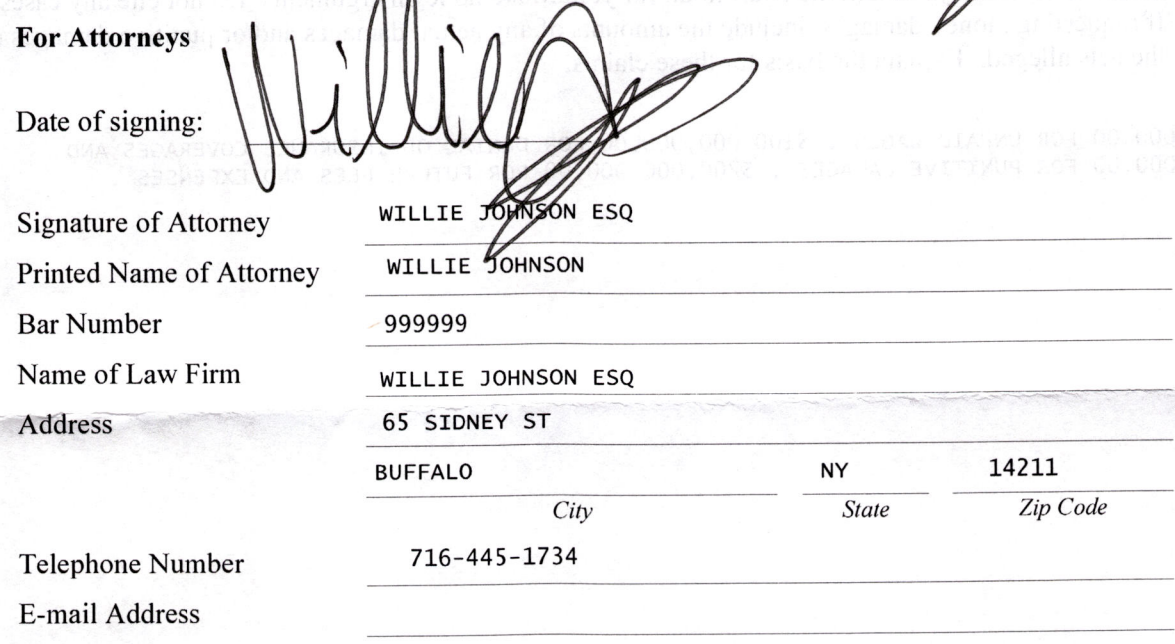 For Attorneys
Date of signing:
Signature of Attorney WILLIE JOHNSON ESQ
Printed Name of Attorney WILLIE JOHNSON
Bar Number 999999
Name of Law Firm WILLIE JOHNSON ESQ
Address 65 SIDNEY ST
BUFFALO NY 14211
City State Zip Code
Telephone Number 716-445-1734
E-mail Address